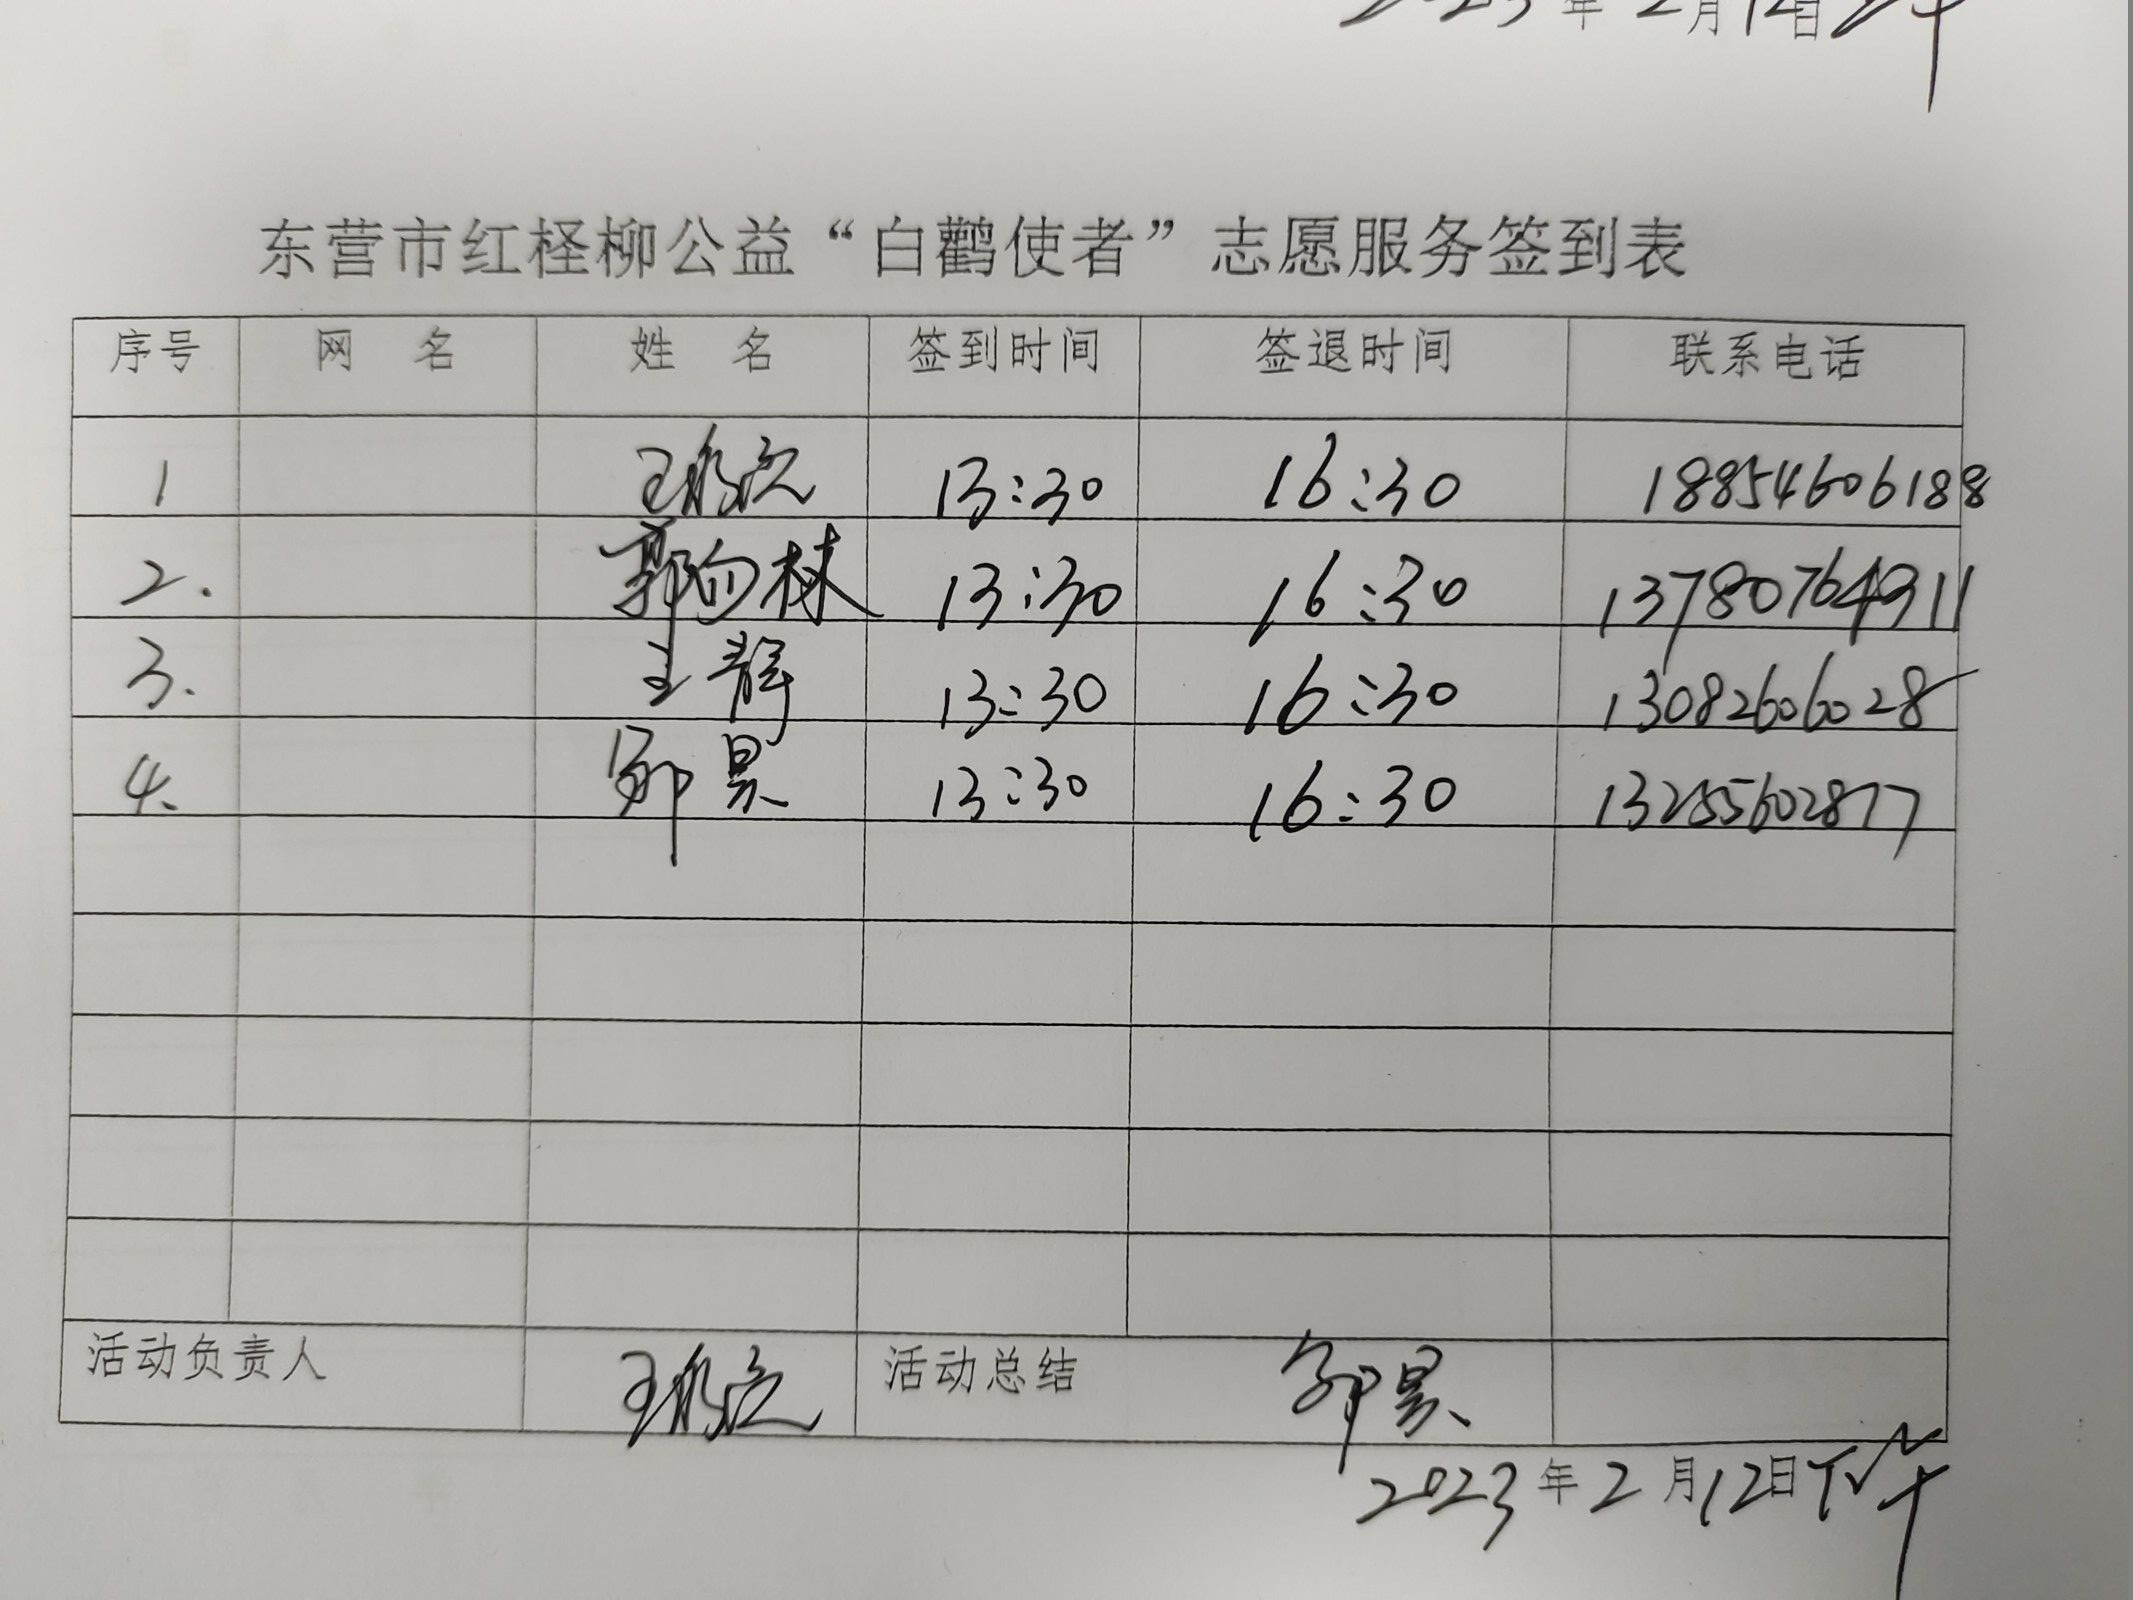 2023年2月12日上午
东营市红柽柳公益“白鹳使者”志愿服务签到表
序号 网 名 姓 名 签到时间 签退时间 联系电话
1 13:30 16:30 18854606188
2. 13:30 16:30 13780764911
3. 王静 13:30 16:30 13082606028
4. 邹昊 13:30 16:30 13255602877
活动负责人 活动总结 邹昊
2023年2月12日下午